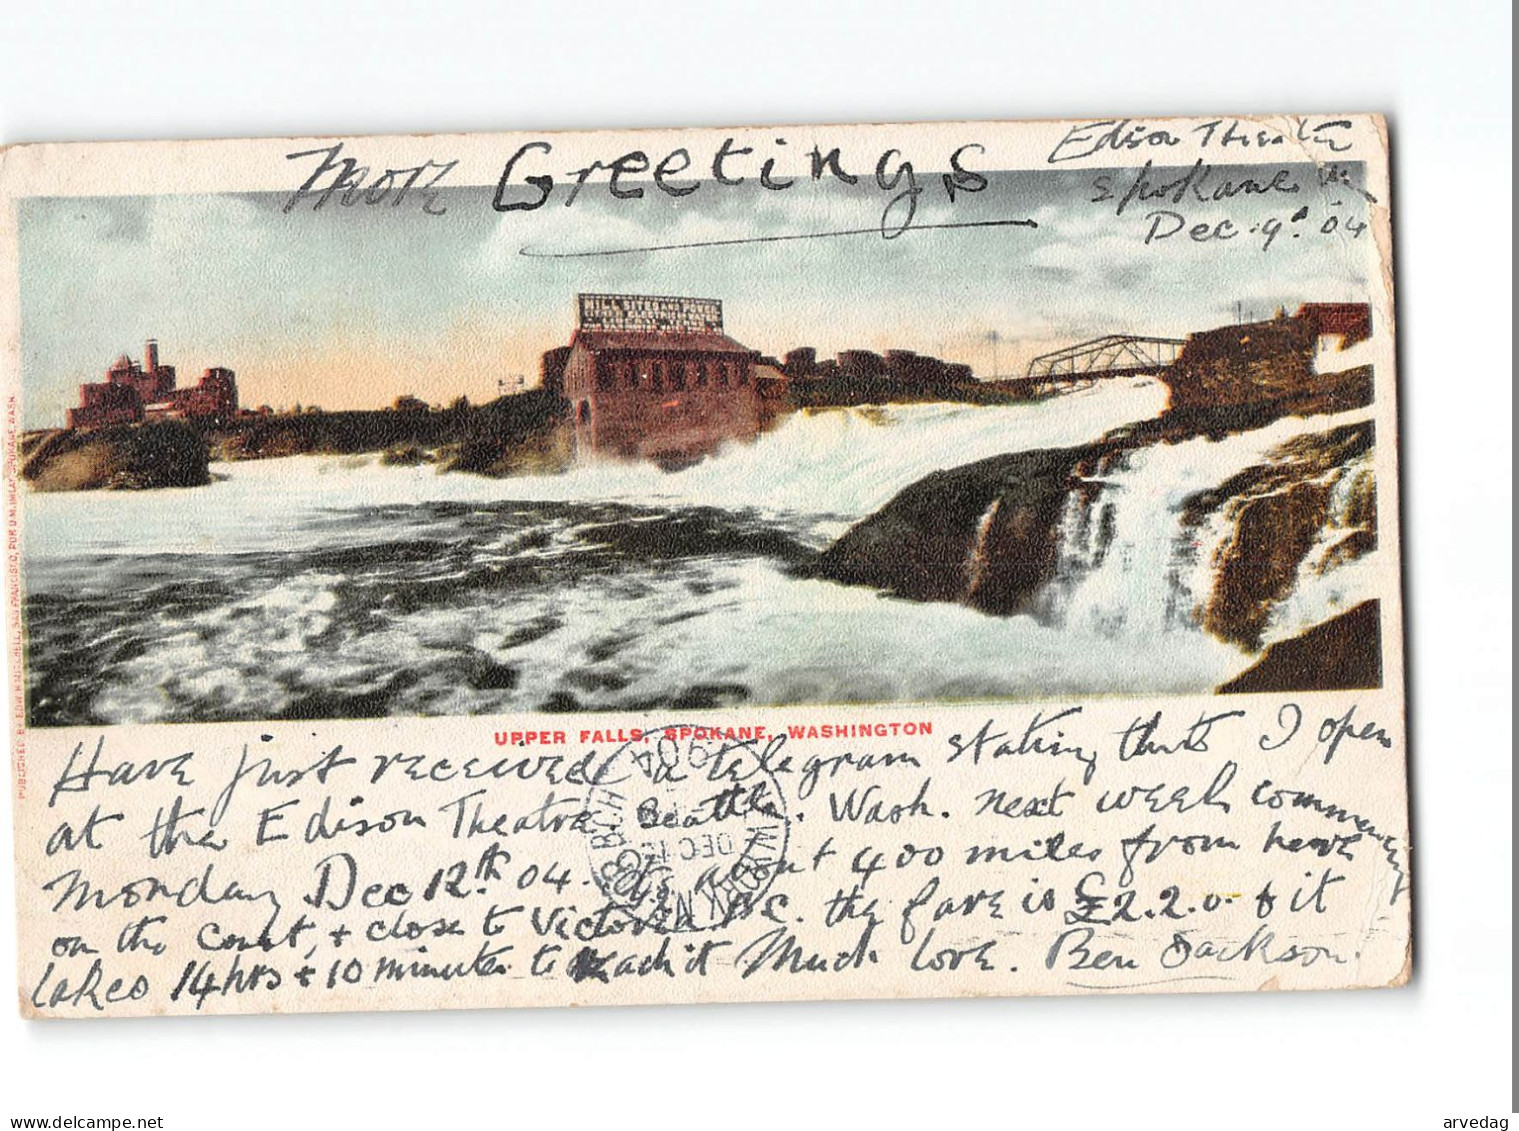 More Greetings
Edison Theatre
Spokane
Dec. 9. 04
MILL SITES AND POWER
UPPER FALLS, SPOKANE, WASHINGTON
PUBLISHED BY EDW. H. MITCHELL, SAN FRANCISCO, FOR
SPOKANE, WASH.
Have just received a telegram stating that I open
at the Edison Theatre Seattle. Wash. next week commencing
Monday Dec 12th 04. It's about 400 miles from here
on the coast, & close to Victoria B.C. the fare is £2.2.0. & it
takes 14 hrs & 10 minutes to reach it Much love. Ben Jackson.
1904
DEC 12